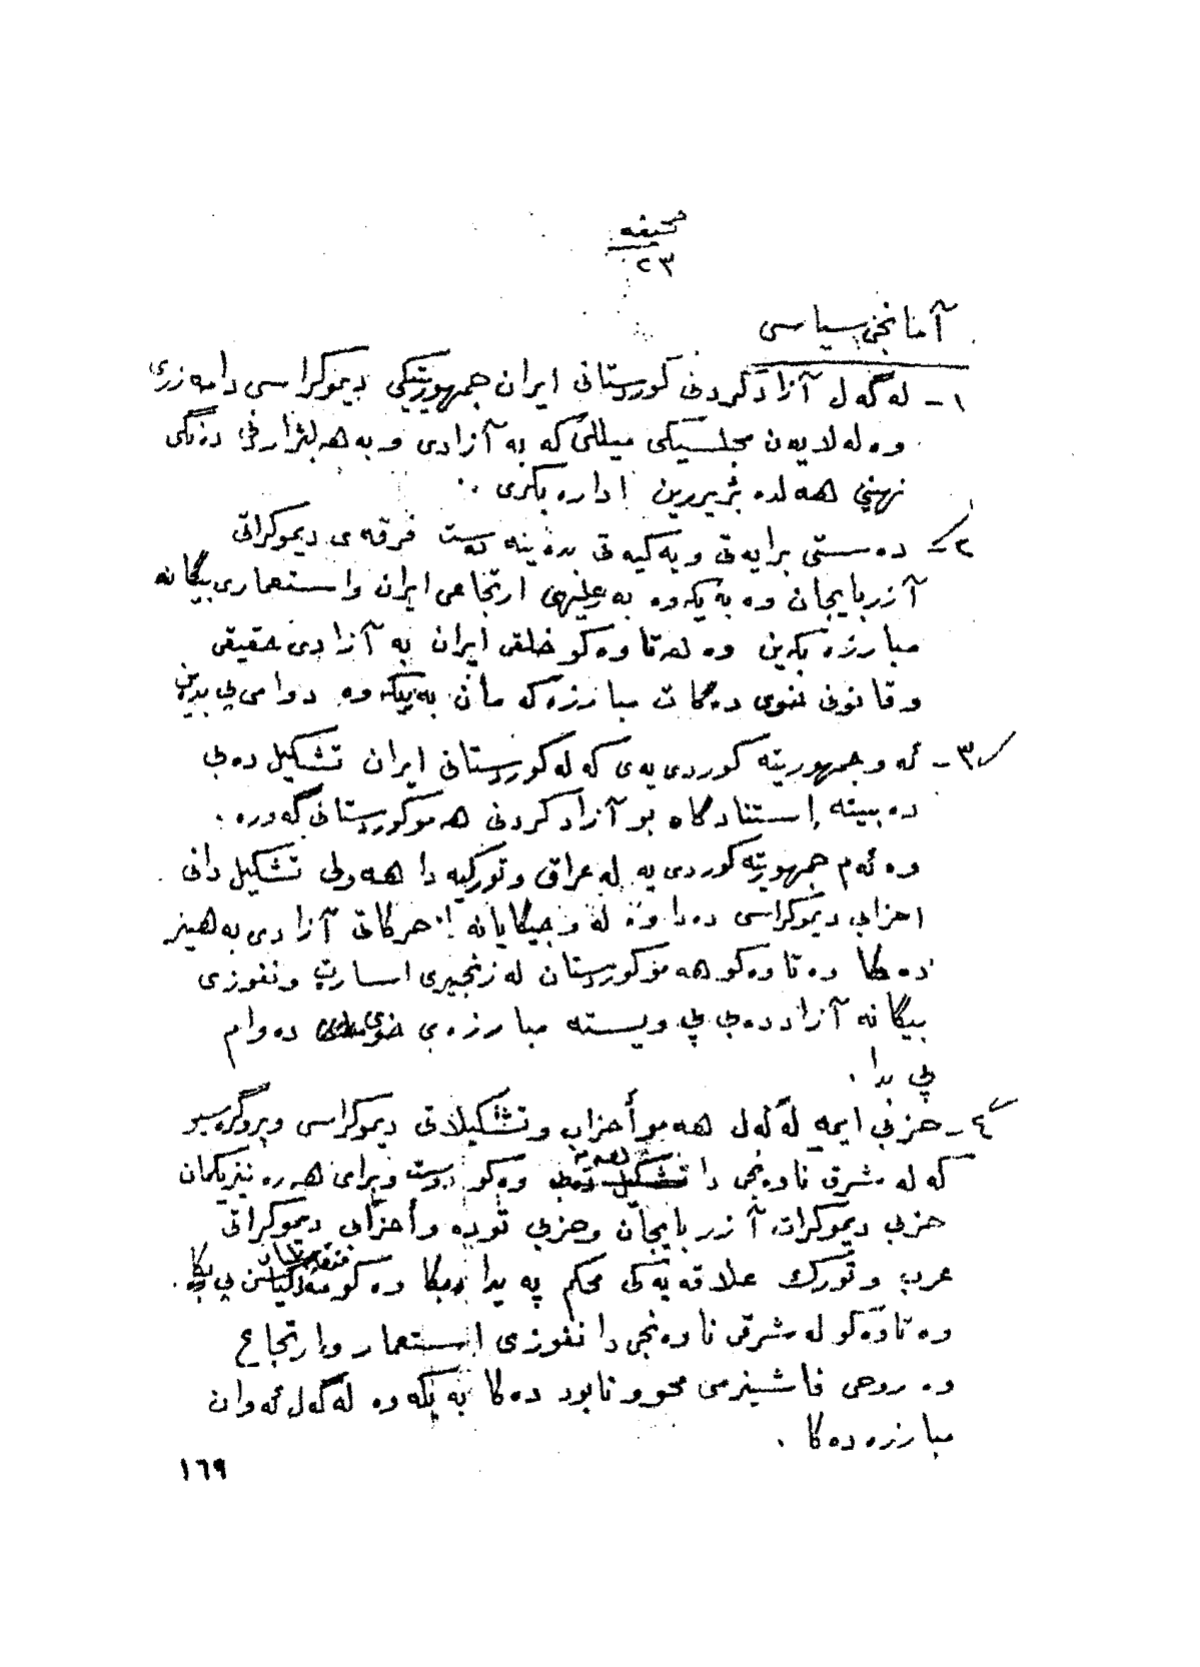 صحیفە
٢٣
آمانجی سیاسی
١- لە گە ل آزاد کردنی کوردستانی ایران جمهوریتیکی دیموکراسی دامە زری
وە لە لایە ن مجلسیکی میللی کە بە آزادی و بە هە لبژارفی دە نگی
نهینی هە لدە بژیررین ادارە بکری .
٢- دە ستی برایە تی و یە کیە تی بدە ینە دە ست فرقە ی دیموکراتی
آزربایجان وە بە یکە وە بە علیهی ارتجاعی ایران و استعماری بیگانە
مبارزە بکە ین وە لە تا وە کو خلقی ایران بە آزادی حقیقی
و قانونی ئە وی دە گات مبارزە کە مان بە یکە وە دوامی پی بدە ین
٣- ئە و جمهوریتە کوردی یە ی کە لە کوردستانی ایران تشکیل دە بی
دە بیتە إستنادگاە بو آزاد کردنی هە مو کوردستانی گە ورە .
وە ئە م جمهوریتە کوردی یە لە عراق و تورکیە دا هە ولی تشکیل دانی
احزابی دیموکراسی دە دا وە لە و جیگایانە حرکاتی آزادی بە هیز
دە کا وە تا وە کو هە مو کوردستان لە زنجیری اسارت و نفوزی
بیگانە آزاد دە بی پی ویستە مبارزە ی خوی دە وام
پی بدا .
٤- حزبی ایمە لە گە ل هە مو أحزاب و تشکیلاتی دیموکراسی و پروگرە سیو
کە لە شرق ناوە نجی دا هە یە وە کو دوست و برای هە رە نیزیکمان
حزبی دیموکرات آزربایجان و حزبی تودە و أحزابی دیموکراتی
عرب و تورک علاقە یە کی محکم پە یدا بکا وە کومە گیان پی بکا .
وە تا وە کو لە شرقی ناوە نجی دا نفوزی استعمار و ارتجاع
وە روحی فاشیزمی محو و نابود دە کا بە یکە وە لە گە ل ئە وان
مبارزە دە کا .
١٦٩